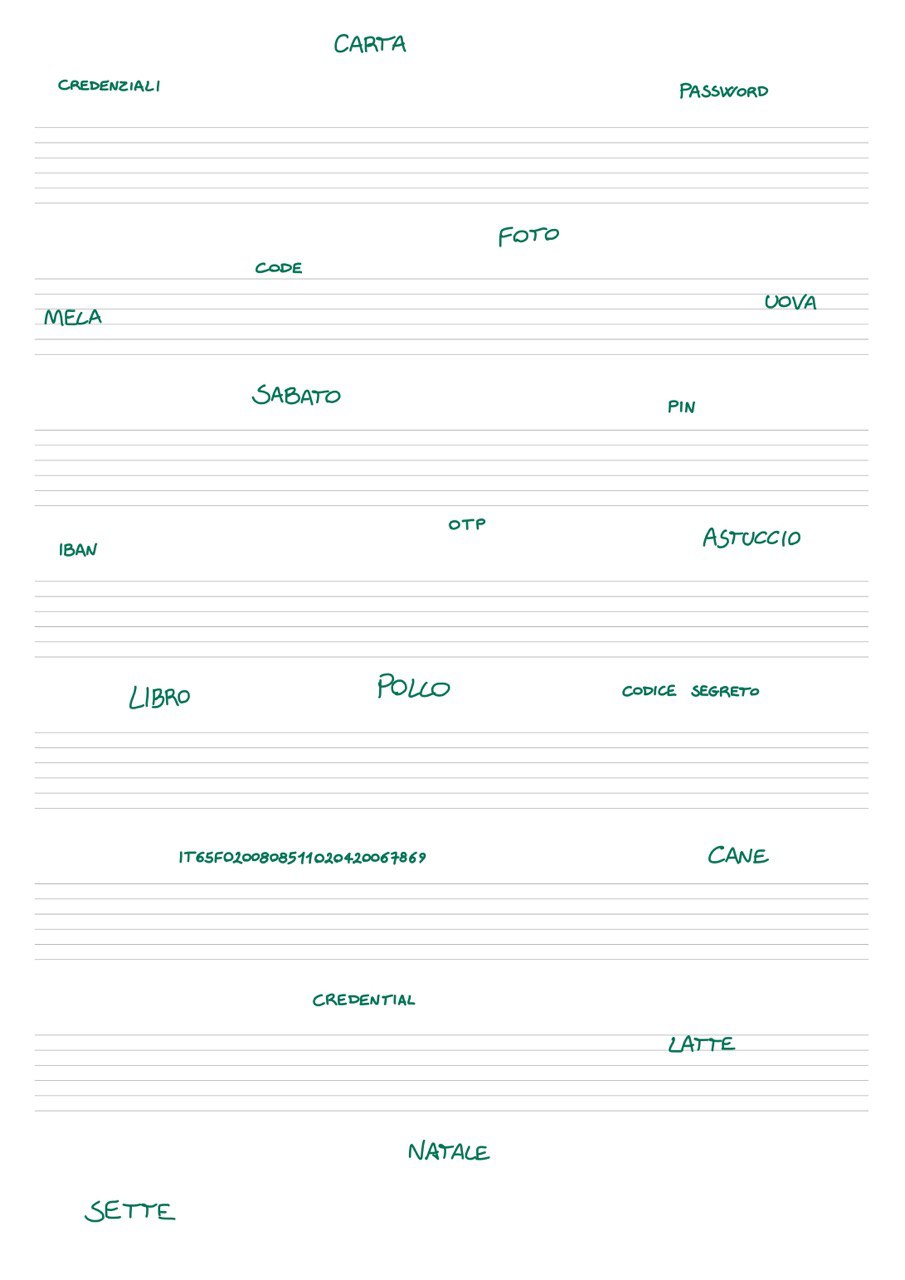 CARTA
CREDENZIALI
PASSWORD
FOTO
CODE
UOVA
MELA
SABATO
PIN
OTP
ASTUCCIO
IBAN
LIBRO
POLLO
CODICE SEGRETO
IT65F0200808511020420067869
CANE
CREDENTIAL
LATTE
NATALE
SETTE